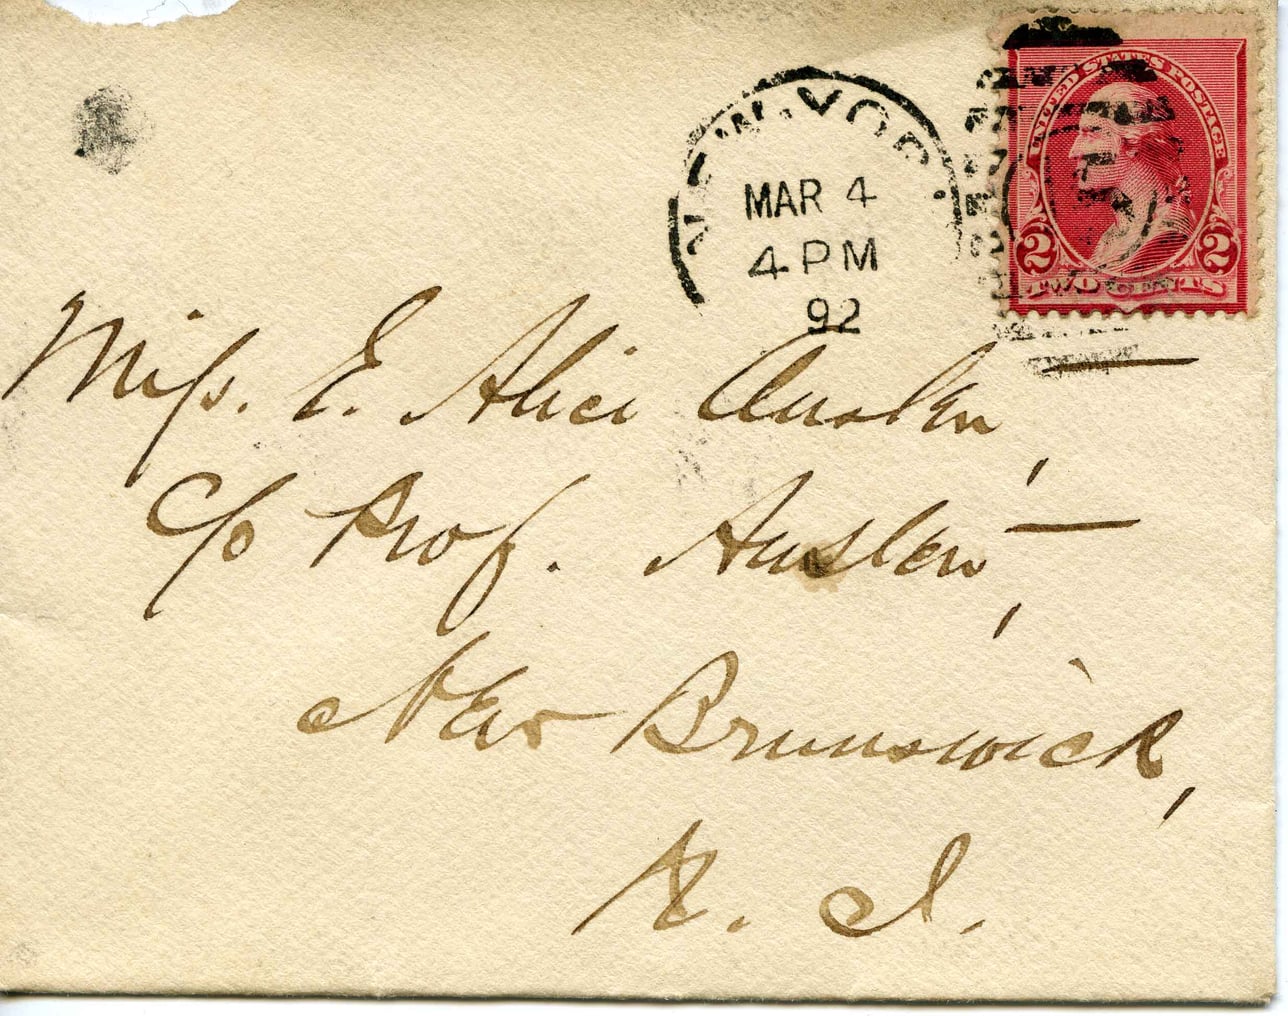 NEW YORK
MAR 4
4 PM
92
UNITED STATES POSTAGE
2 2
TWO CENTS
Miss. E. Alice Austen,
c/o Prof. Austen,
New Brunswick,
N. J.